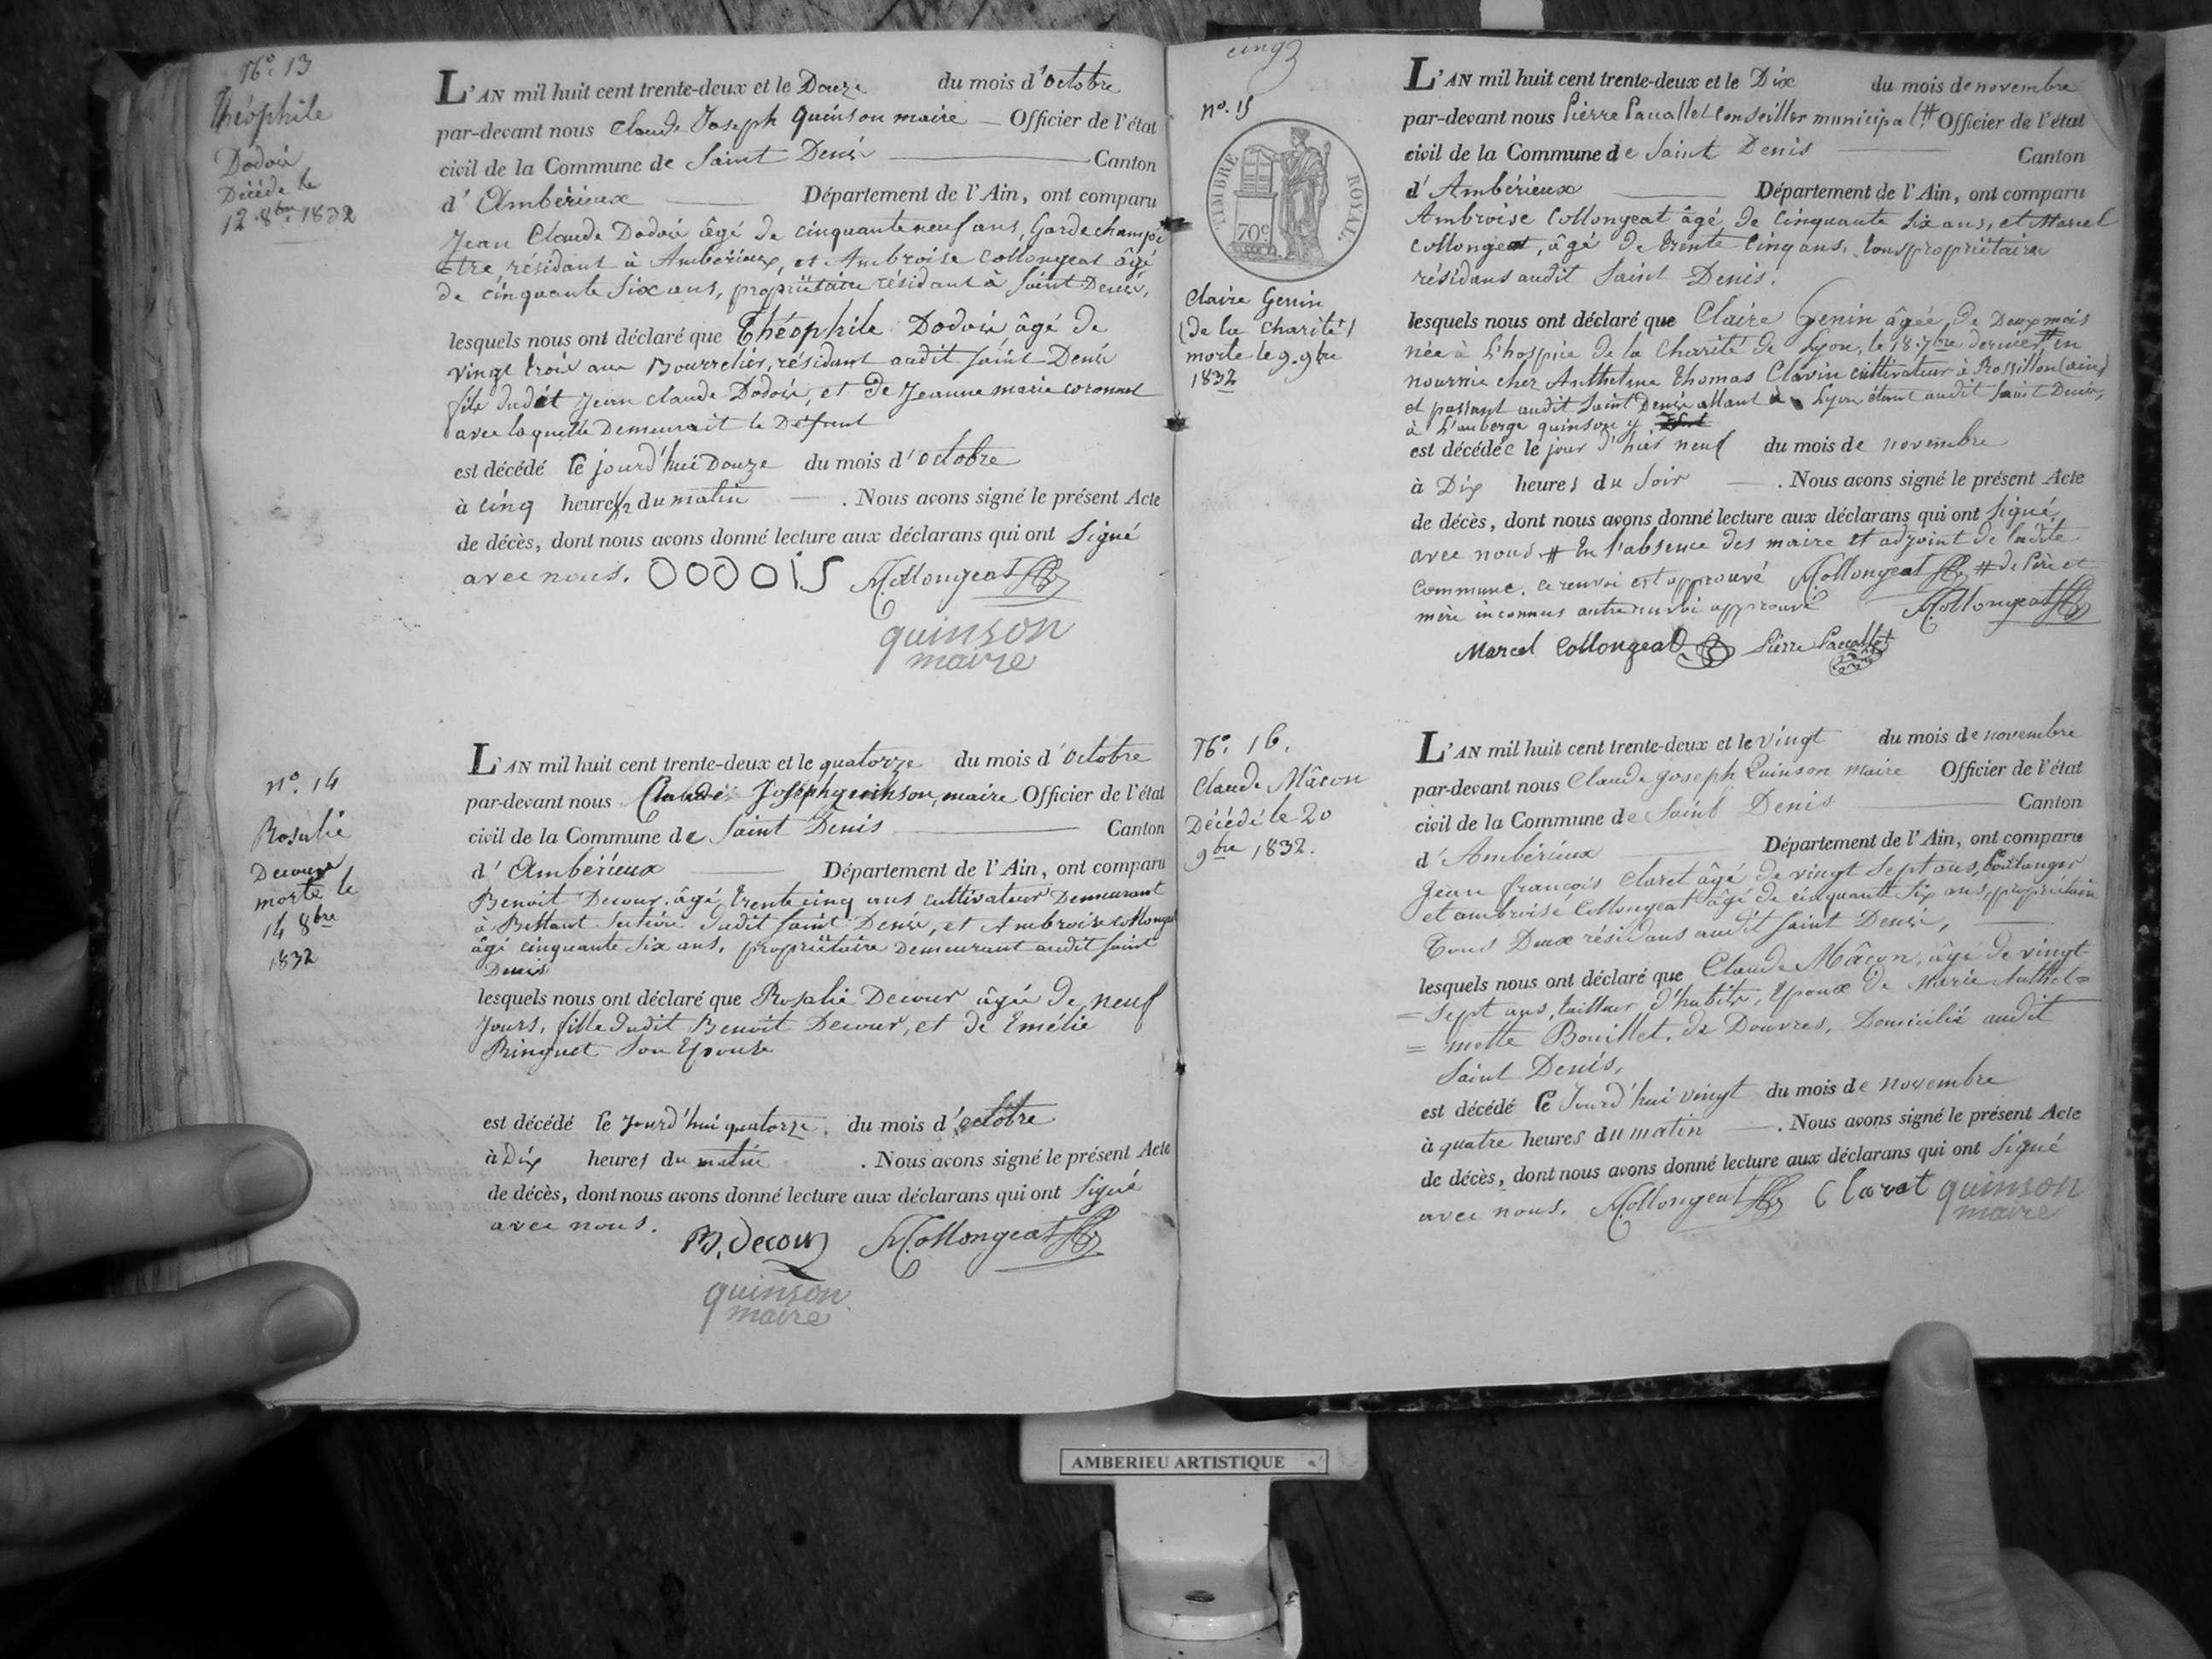 N.º 13
Théophile
Dodois
Décédé le
12. 8bre 1832
L'AN mil huit cent trente-deux et le Douze du mois d'octobre
par-devant nous Claude Joseph Quinson maire — Officier de l'état
civil de la Commune de Saint Denis — Canton
d'Ambérieux — Département de l'Ain, ont comparu
Jean Claude Dodois âgé de cinquante neuf ans, Garde champê
tre, résidant à Ambérieux, et Ambroise Collongeat âgé
de cinquante six ans, propriétaire résidant à Saint Denis,
lesquels nous ont déclaré que Théophile Dodois âgé de
vingt trois ans Bourrelier, résidant audit Saint Denis
fils dudit Jean Claude Dodois, et de Jeanne marie
avec laquelle Demeurait le Défunt
est décédé le jourd'hui Douze du mois d'octobre
à cinq heures 1/2 du matin — . Nous avons signé le présent Acte
de décès, dont nous avons donné lecture aux déclarans qui ont Signé
avec nous. DODOIS Collongeat
quinson
maire
n.º 14
Rosalie
Decour
morte le
14 8bre
1832
L'AN mil huit cent trente-deux et le quatorze du mois d'octobre
par-devant nous Claude Joseph quinson, maire Officier de l'état
civil de la Commune de Saint Denis — Canton
d'Ambérieux — Département de l'Ain, ont comparu
Benoit Decour, âgé trente cinq ans cultivateur Demeurant
à Bettant Section dudit Saint Denis, et Ambroise Collongeat
âgé cinquante six ans, propriétaire demeurant audit Saint
Denis
lesquels nous ont déclaré que Rosalie Decour âgée de neuf
jours, fille dudit Benoit Decour, et de Emélie
Ringuet Son Epouse
est décédé le jourd'hui quatorze. du mois d'octobre
à Dix heures du matin . Nous avons signé le présent Acte
de décès, dont nous avons donné lecture aux déclarans qui ont Signé
avec nous.
B. Decour Collongeat
quinson
maire
cinq
n.º 15
TIMBRE ROYAL.
70c
Claire Genin
(de la charité)
morte le 9. 9bre
1832
L'AN mil huit cent trente-deux et le Dix du mois de novembre
par-devant nous Pierre Pacallet Conseiller municipal # Officier de l'état
civil de la Commune de Saint Denis — Canton
d'Ambérieux — Département de l'Ain, ont comparu
Ambroise Collongeat âgé de cinquante six ans, et Marcel
Collongeat, âgé de trente cinq ans, tous propriétaires
résidans audit Saint Denis.
lesquels nous ont déclaré que Claire Genin âgée de Deux mois
née à l'hospice de la Charité de Lyon, le 18. 7bre dernier # en
nourrice chez Anthelme Thomas Clavin cultivateur à Rossillon (ain)
et passant audit Saint Denis allant à Lyon étant audit Saint Denis,
à l'auberge quinson y
est décédée le jour d'hier neuf du mois de novembre
à Dix heures du Soir — . Nous avons signé le présent Acte
de décès, dont nous avons donné lecture aux déclarans qui ont Signé
avec nous. # En l'absence des maire et adjoint de ladite
Commune. ce renvoi est approuvé Collongeat # de Père et
mère inconnus autre renvoi approuvé Collongeat
Marcel Collongeat Pierre Pacallet
N.º 16.
Claude Mâcon
Décédé le 20
9bre 1832.
L'AN mil huit cent trente-deux et le vingt du mois de novembre
par-devant nous Claude Joseph Quinson maire Officier de l'état
civil de la Commune de Saint Denis — Canton
d'Ambérieux — Département de l'Ain, ont comparu
Jean françois Claret âgé de vingt Sept ans, boulanger
et ambroise Collongeat âgé de cinquante six ans, propriétaire
Tous Deux résidans audit Saint Denis, —
lesquels nous ont déclaré que Claude Mâcon, âgé de vingt
= Sept ans, tailleur d'habits, Epoux de Marie Anthel=
= mette Bouillet, de Douvres, Domicilié audit
Saint Denis,
est décédé le Jourd'hui vingt du mois de novembre
à quatre heures du matin — . Nous avons signé le présent Acte
de décès, dont nous avons donné lecture aux déclarans qui ont Signé
avec nous. Collongeat Claret quinson
maire
AMBERIEU ARTISTIQUE